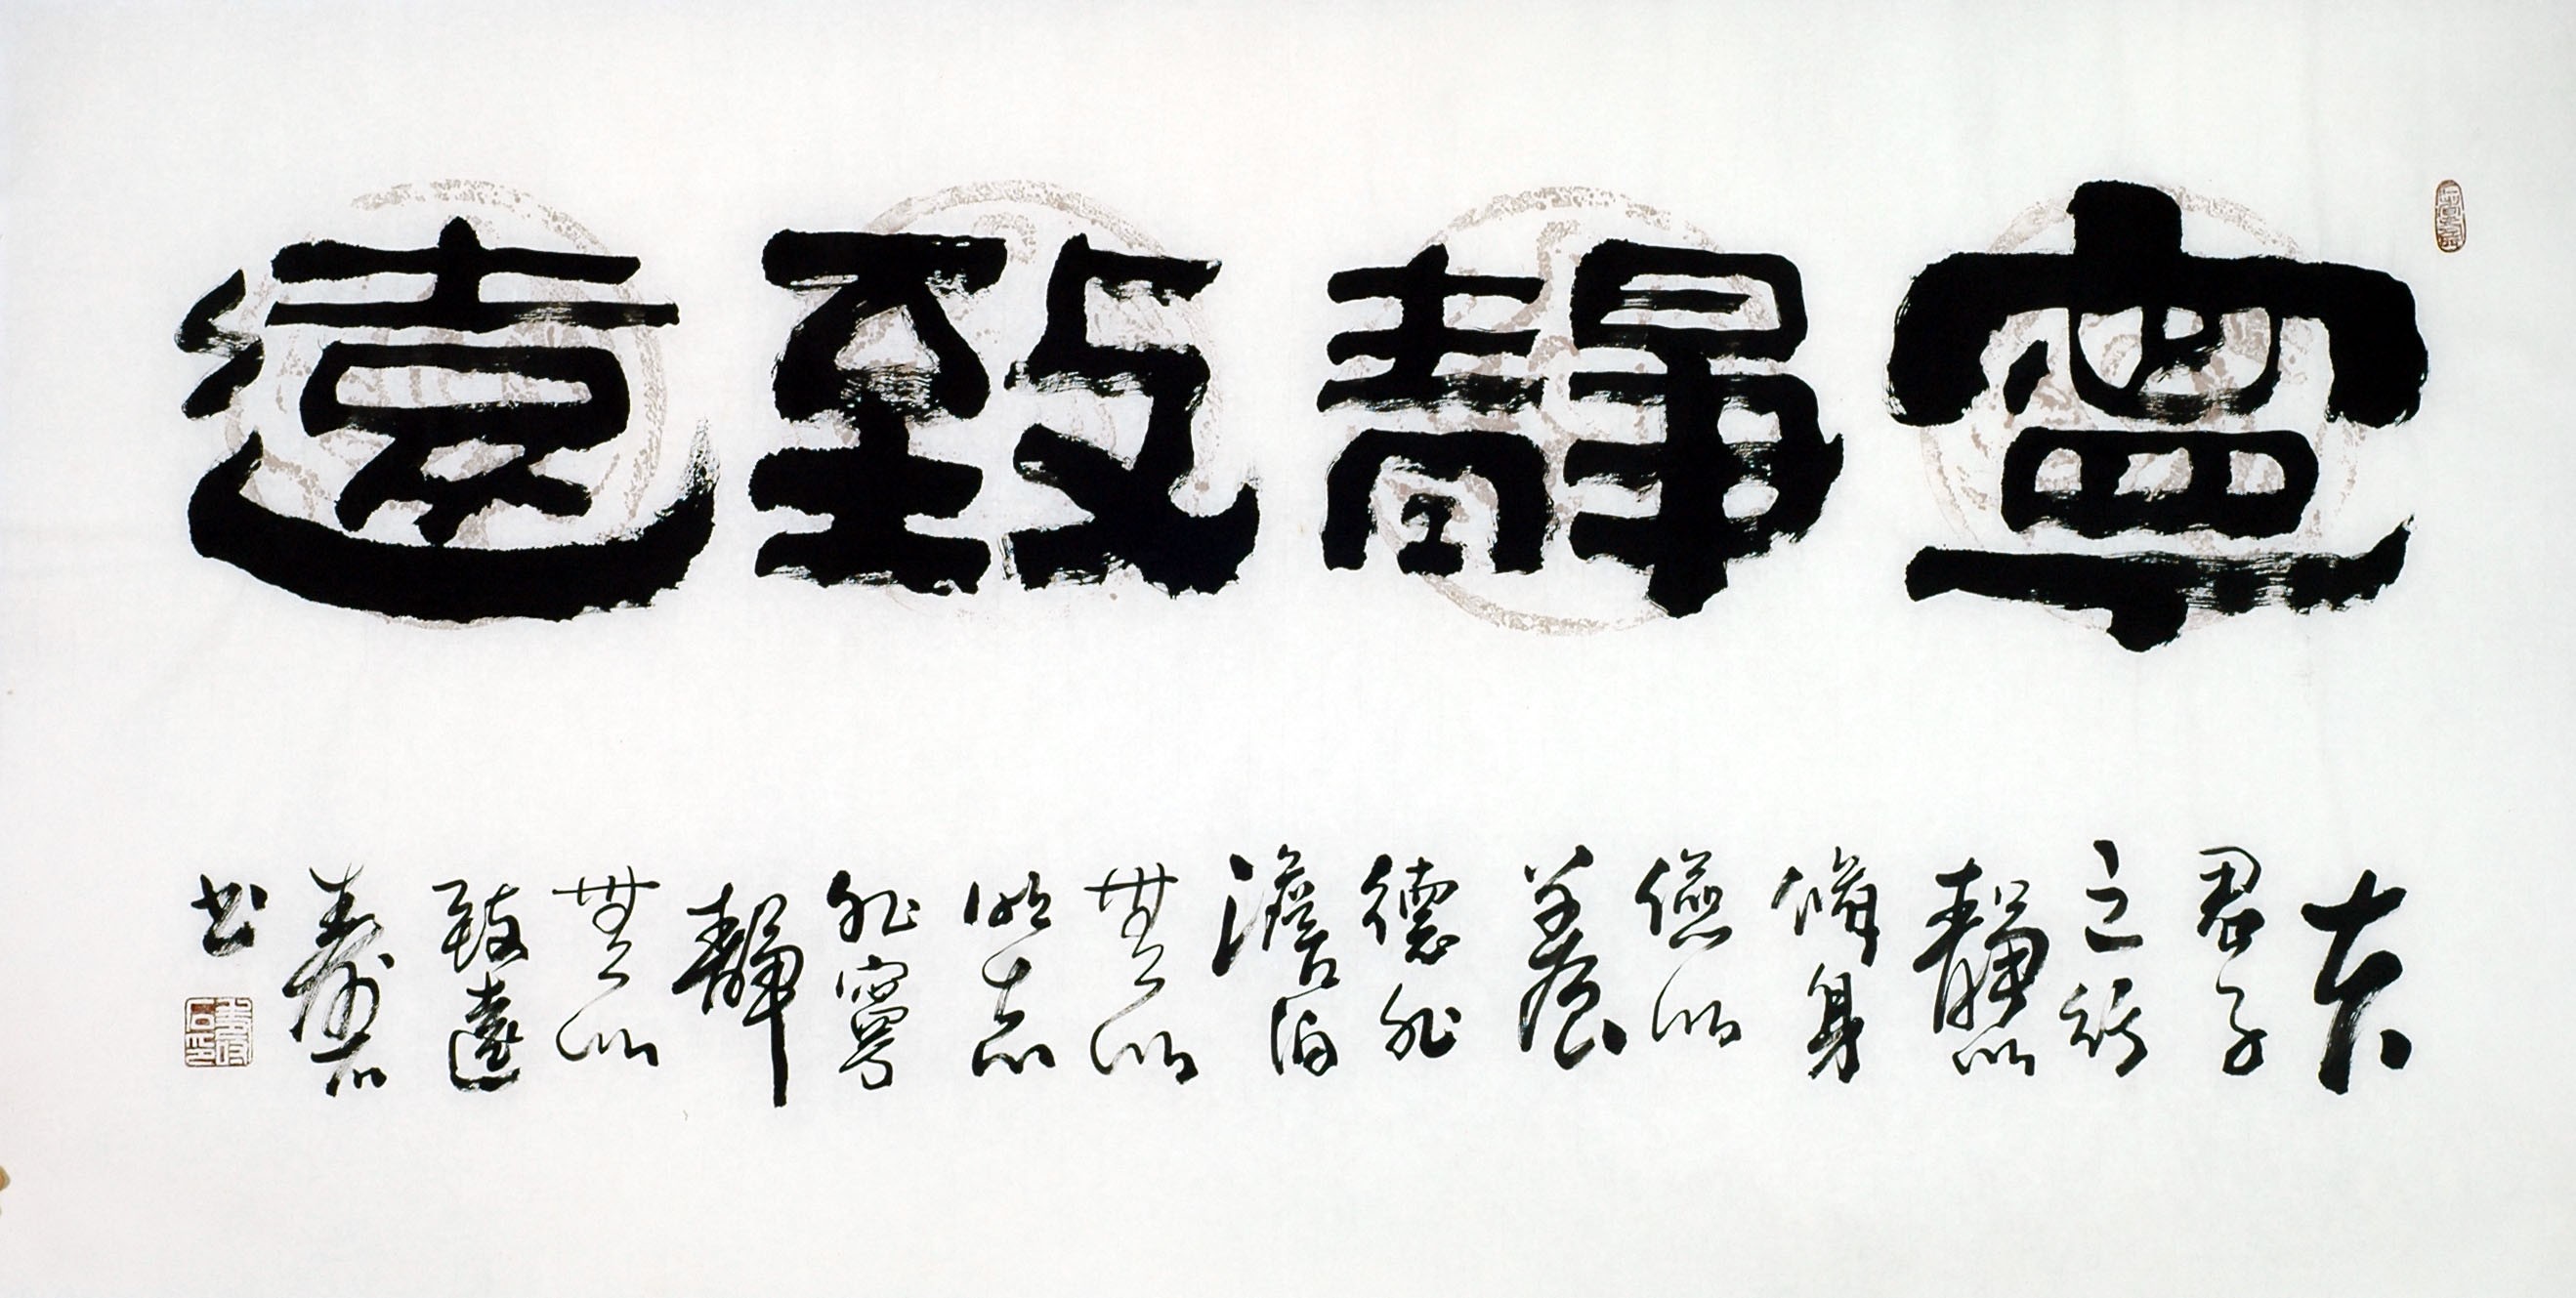 寧靜致遠
夫
君子
之行
靜以
修身
儉以
養
德非
澹泊
無以
明志
非寧
靜
無以
致遠
壽石
書